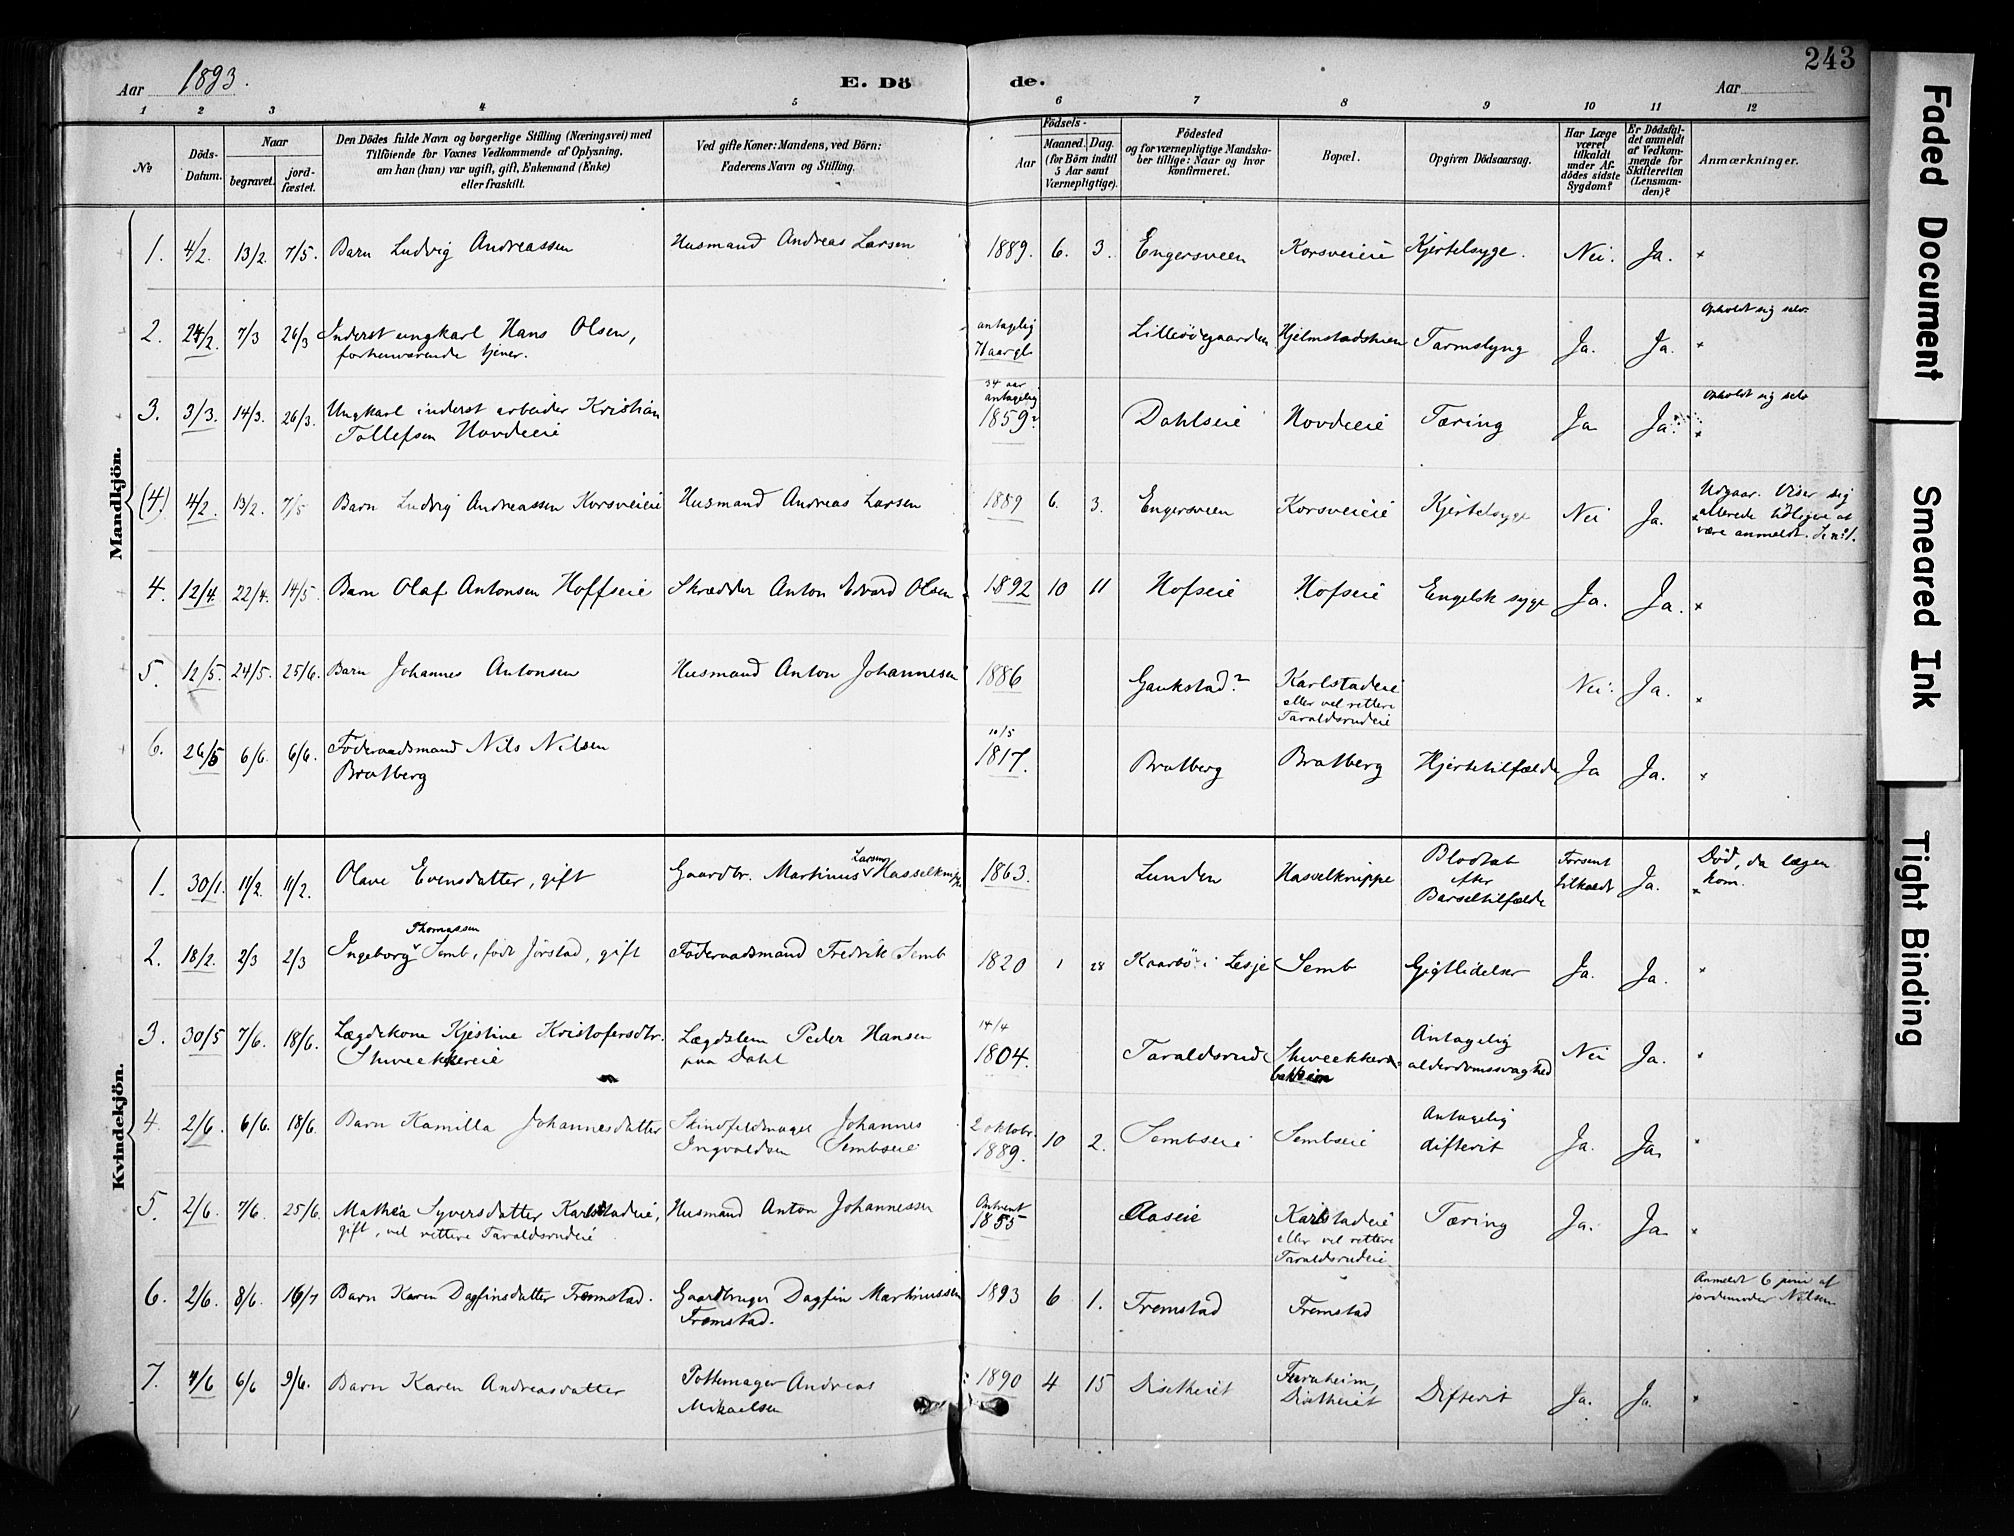 243
Aar 1893.
E. Döde.
Aar
1 2 3 4 5 6 7 8 9 10 11 12
No
Döds-Datum.
Naar
begravet.
jord-fæstet.
Den Dödes fulde Navn og borgerlige Stilling (Næringsvei) med
Tilföiende for Voxnes Vedkommende af Oplysning,
om han (hun) var ugift, gift, Enkemand (Enke)
eller fraskilt.
Ved gifte Koner: Mandens, ved Börn:
Faderens Navn og Stilling.
Födsels-
Aar
Maaned. Dag.
(for Börn indtil
5 Aar samt
Værnepligtige).
Födested
og for værnepligtige Mandska-
ber tillige: Naar og hvor
konfirmeret.
Bopæl.
Opgiven Dödsaarsag.
Har Læge
været
tilkaldt
under Af-
dödes sidste
Sygdom?
Er Dödsfal-
det anmeldt
af Vedkom-
mende for
Skifteretten
(Lensman-
den)?
Anmærkninger.
Mandkjön.
1. 4/2. 13/2. 7/5. Barn Ludvig Andreassen Husmand Andreas Larsen 1889. 6. 3. Engersveen Korsveieie Kjertelsyge. Nei. Ja. ×
2. 24/2. 7/3 26/3 Inderst ungkarl Hans Olsen, antagelig Lilleödegaarden Tarmslyng Ja. Ja. ×
forhenværende tjener.
Opholdt sig selv
3. 3/3. 14/3. 26/3. Ungkarl inderst arbeider Kristian 34 aar antagelig 1859? Dahlseie Hovdeeie Tæring Ja Ja. ×
Tollefsen Hovdeeie
Opholdt sig selv
(4) 4/2. 13/2. 7/5 Barn Ludvig Andreassen Korsveieie Husmand Andreas Larsen 1889 6. 3. Engersveen Korsveieie Kjertelsyge Nei Ja. ×
Udgaar. Viser sig
allerede tidligere at
være anmeldt. Se no 1.
4. 12/4. 22/4. 14/5. Barn Olaf Antonsen Hoffseie Skrædder Anton Edvard Olsen 1892 10 11 Hofseie Hofseie Engelsk syge Ja. Ja. ×
5. 12/5. 24/5. 25/6. Barn Johannes Antonsen Husmand Anton Johannesen 1886 Gaukstad? Karlstadeie Nei. Ja. ×
eller vel rettere
Taraldsrudeie
6. 26/5 6/6. 6/6. Föderaadsmand Nils Nilsen 10/5 1817. Bratberg Bratberg Hjertetilfælde Ja Ja. ×
Bratberg
Kvindekjön.
1. 30/1. 11/2. 11/2. Olave Evensdatter, gift Gaardbr. Martinus Larsen Hasselknippe 1863. Lunden Hasselknippe Blodtab efter Barseltilfælde Forsent tilkaldt Ja. ×
Död, da lægen
kom.
2. 18/2. 2/3 2/3 Ingeborg Thomassen Semb, född Jörstad, gift Föderaadsmand Fredrik Semb 1820 1 28 Kaarbö i Lesje Semb Gigtlidelser Ja. Ja. ×
3. 30/5 7/6. 18/6. Lægdekone Kjestine Kristofersdtr. Lægdslem Peder Hansen 14/4 1804. Taraldsrud Antagelig Nei Ja. ×
paa Dahl alderdomssvaghed
4. 2/6. 6/6. 18/6. Barn Kamilla Johannesdatter Skindfeldmager Johannes 2 oktobr. 1889. 10 2. Sembseie Sembseie Antagelig difterit Ja. Ja. ×
Ingvaldsen Sembseie
5. 2/6. 7/6. 25/6. Mathea Syversdatter Karlstadeie, Husmand Anton Johannessen Omtrent 1855 Aaseie Karlstadeie Tæring Ja. Ja ×
gift, vel rettere Taraldsrudeie
eller vel rettere
Taraldsrudeie.
6. 2/6. 8/6. 16/7 Barn Karen Dagfinsdatter Fremstad. Gaardbruger Dagfin Martinussen 1893 6 1. Fremstad Fremstad
Fremstad.
Anmeldt 6 juni af
jordemoder Nilsen
7. 4/6 6/6 9/6. Barn Karen Andreasdatter Pottemager Andreas 1890 4 15 Disetheiet Furuheim, Difterit Ja. Ja ×
Mikaelsen Disetheiet
Faded Document
Smeared Ink
Tight Binding